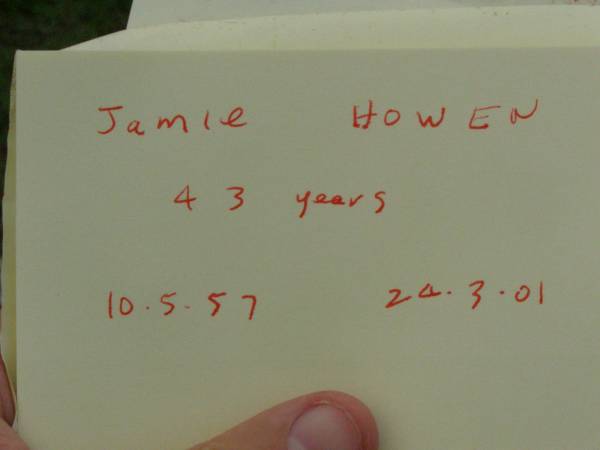 Jamie HOWEN
43 years
10.5.57 24.3.01